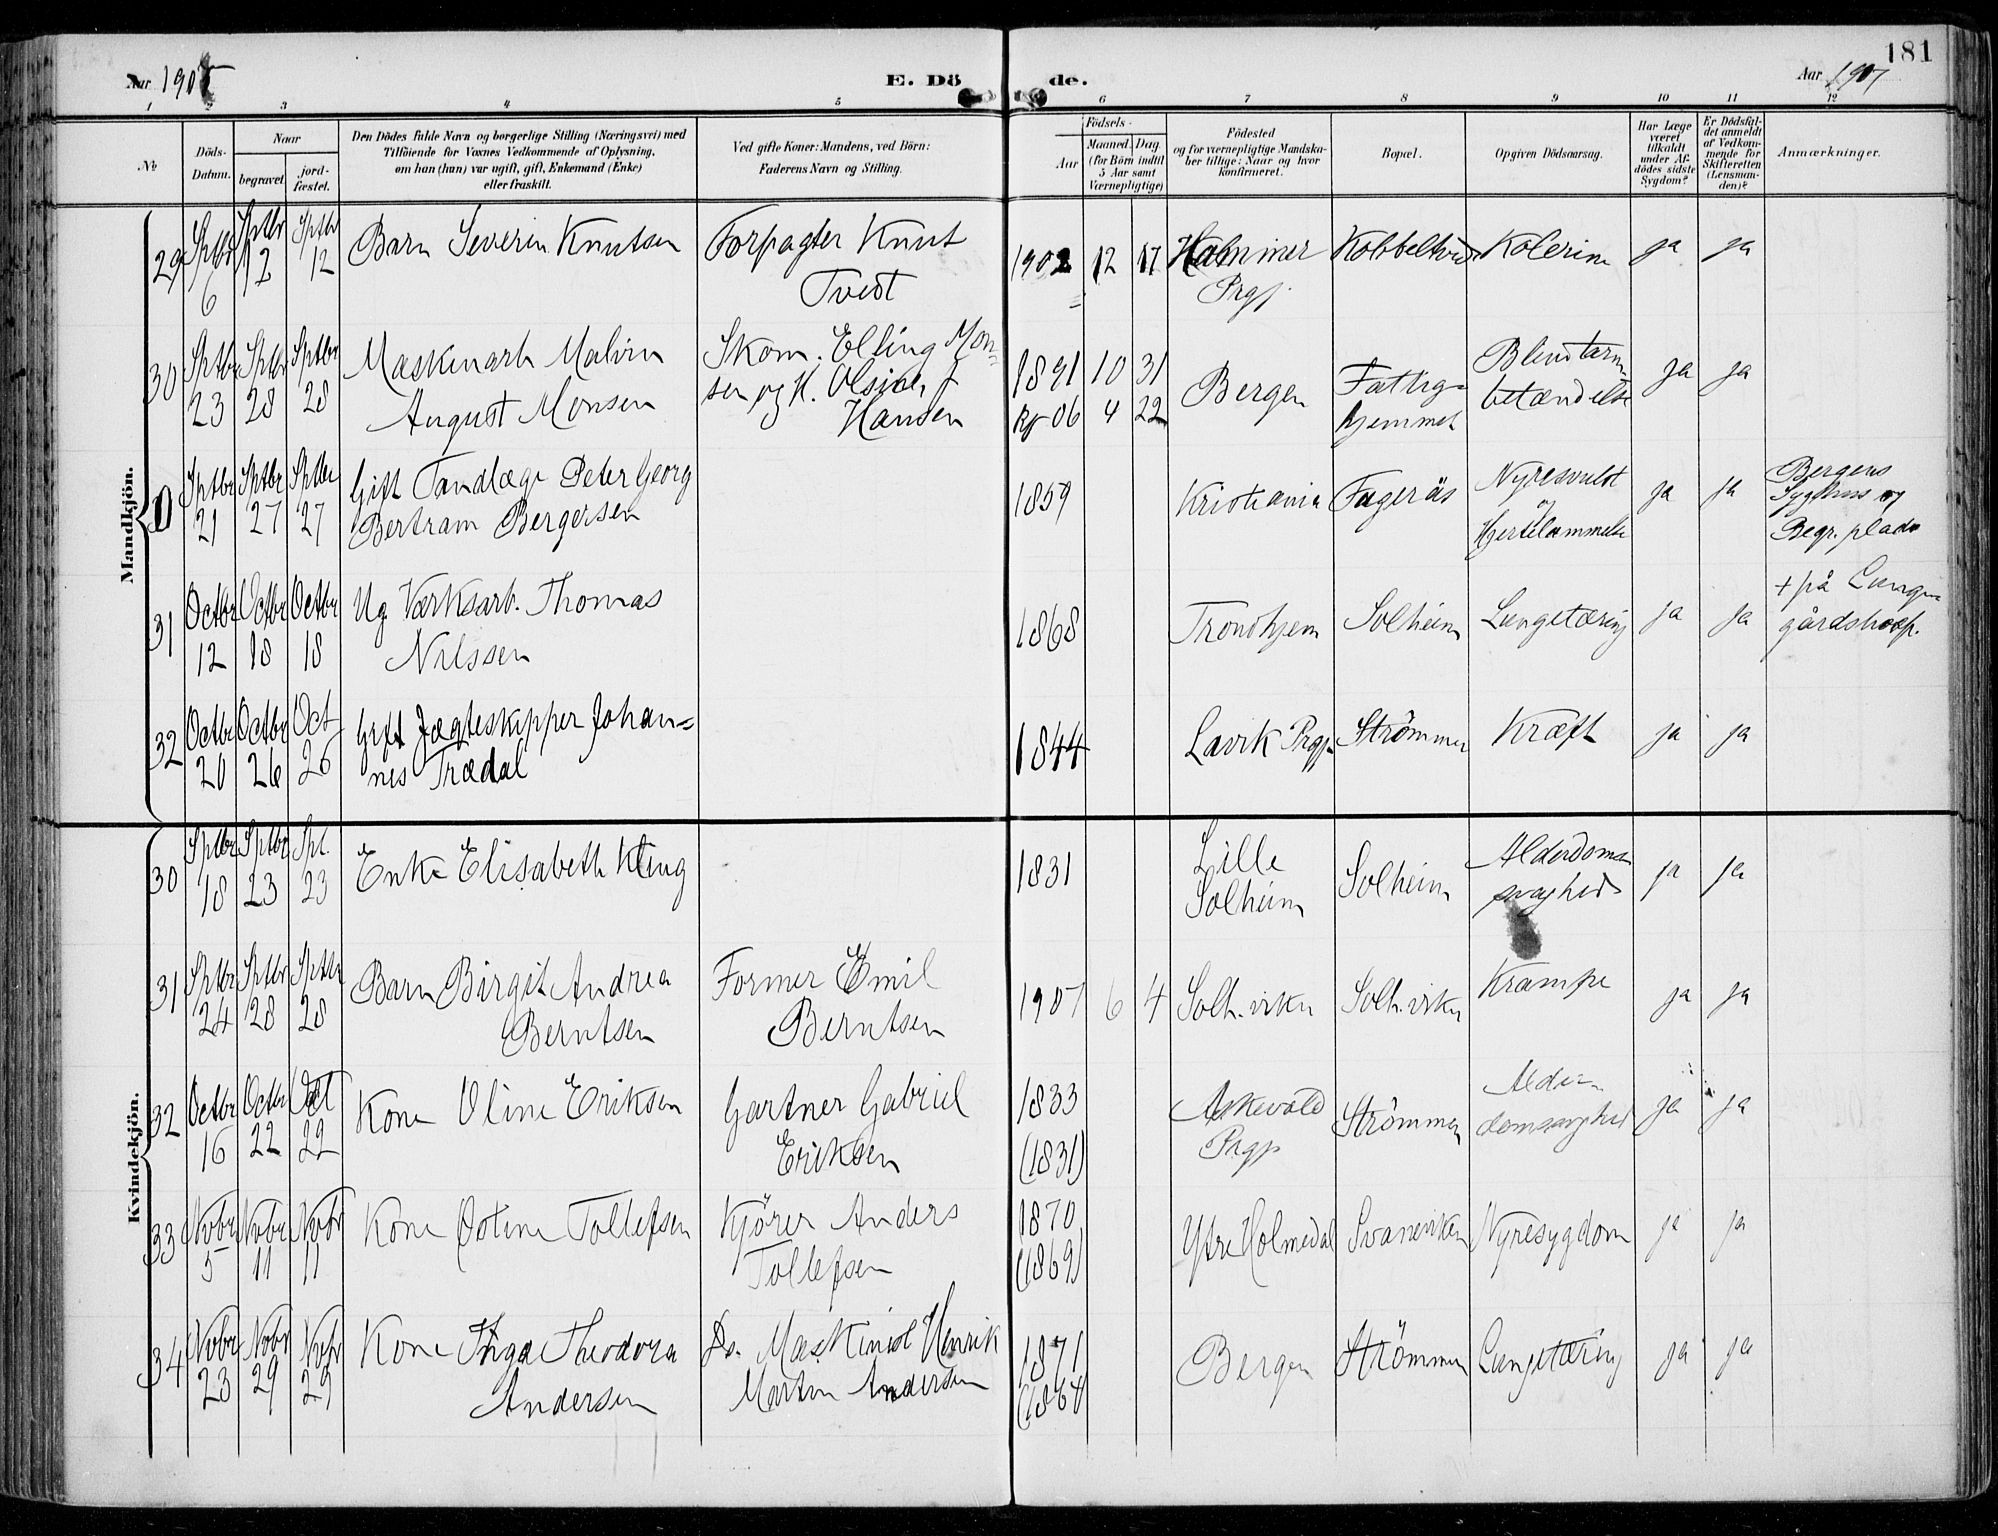 181
Aar 1907 E. Dö de. Aar 1907
1 2 3 4 5 6 7 8 9 10 11 12
No
Döds-
Datum.
Naar
begravet.
jord-
fæstet.
Den Dödes fulde Navn og borgerlige Stilling (Næringsvei) med
Tilföiende for Voxnes Vedkommende af Oplysning,
om han (hun) var ugift, gift, Enkemand (Enke)
eller fraskilt.
Ved gifte Koner: Mandens, ved Börn:
Faderens Navn og Stilling.
Födsels-
Aar
Maaned. Dag.
(for Börn indtil
5 Aar samt
Værnepligtige)
Födested
og for værnepligtige Mandska-
ber tillige: Naar og hvor
konfirmeret.
Bopæl.
Opgiven Dödsaarsag.
Har Læge
været
tilkaldt
under Af-
dödes sidste
Sygdom?
Er Dödsfal-
det anmeldt
af Vedkom-
mende for
Skifteretten
(Lensman-
den)?
Anmærkninger.
Mandkjön.
29 Sptbr 6 Sptbr 12 Sptbr 12 Barn Severin Knutsen Forpagter Knut
Tvedt
1902 12 17 Hammer
Prgj.
Kobbeltvedt Kolerine ja ja
30 Sptbr 23 Sptbr 28 Sptbr 28 Maskinarb Malvin
August Monsen
Skom. Elling Mon-
sen og H. Olsine, f
Hansen
1891 10 31
Kf 06 4 22
Bergen Fattig-
hjemmet
Blindtarm-
betændelse
ja ja
D Sptbr 21 Sptbr 27 Sptbr 27 Gift Tandlæge Peter Georg
Bertram Bergersen
1859 Kristiania Fagerås Nyresvulst
og
Hjertelammelse
ja ja Bergens
Sygehus og
Begr. plads
31 Octbr 12 Octbr 18 Octbr 18 Ug. Værksarb. Thomas
Nilssen
1868 Trondhjem Solheim Lungetæring ja ja + på Lunge-
gårdshosp.
32 Octbr 20 Octbr 26 Oct 26 Gift Jægteskipper Johan-
nes Trædal
1844 Lavik Prgj. Strömmen Kræft ja ja
Kvindekjön.
30 Sptbr 18 Sptbr 23 Spt. 23 Enke Elisabeth Kling
1831 Lille
Solheim
Solheim Alderdoms
svaghed
ja ja
31 Sptbr 24 Sptbr 28 Sptbr 28 Barn Birgit Andrea
Berntsen
Former Emil
Berntsen
1907 6 4 Solh. viken Solh. viken Krampe ja ja
32 Octbr 16 Octbr 22 Oct 22 Kone Oline Eriksen Gartner Gabriel
Eriksen
1833
(1831)
Askevold
Prgj.
Strömmen Alder-
domssvaghed
ja ja
33 Novbr 5 Novbr 11 Novbr 11 Kone Ostine Tollefsen Kjörer Anders
Tollefsen
1870
(1869)
Ytre Holmedal Svaneviken Nyresygdom ja ja
34 Novbr 23 Novbr 29 Novbr 29 Kone Inga Theodora
Andersen
Ds. Maskinist Henrik
Martin Andersen
1871
(1864
Bergen Strömmen Lungetæring ja ja